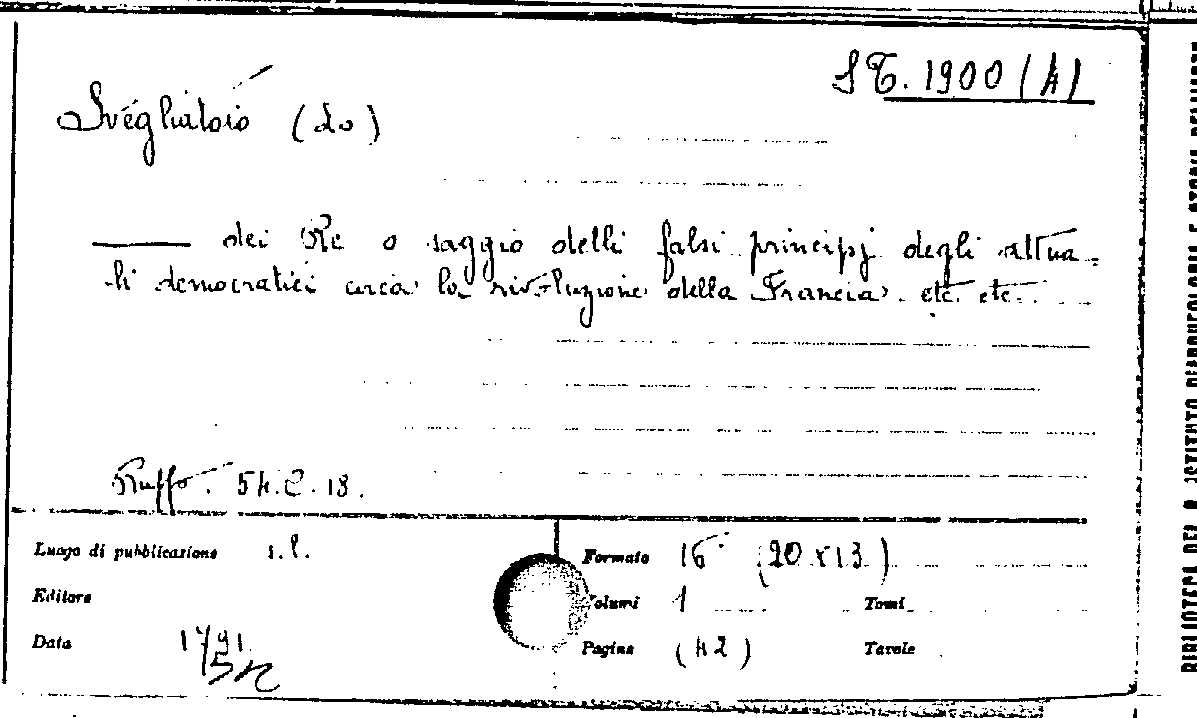 ST. 1900 (4)
Svegliatoio (Lo)
dei Re o saggio delli falsi principj degli attua=
li democratici circa la rivoluzione della Francia. etc. etc.
Ruffo. 54.C.18.
Luogo di pubblicazione s.l.
Formato 16° (20x13)
Editore
Volumi 1 Tomi
Data 1791
Pagine (42) Tavole
BIBLIOTECA DEL R. ISTITUTO D'ARCHEOLOGIA E STORIA DELL'ARTE